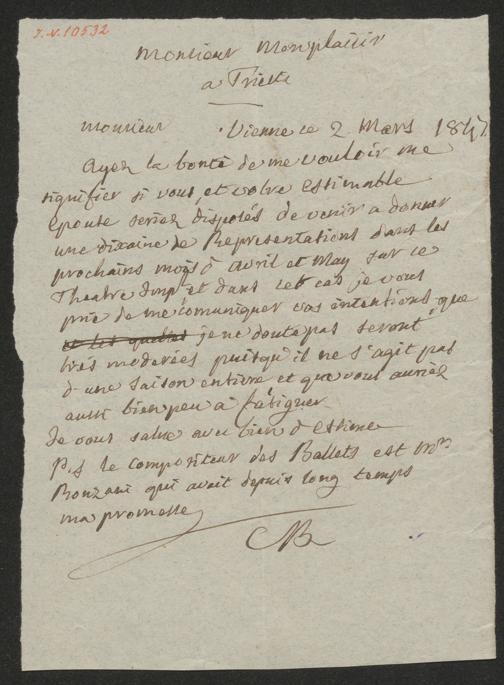 I.N.10532
Monsieur Monplaisir
a Trieste
Monsieur Vienne ce 2 Mars 1847
Ayez la bonté de me vouloir me
signifier si vous et votre estimable
epouse seriez disposés de venir a donner
une dixaine de Representations dans les
prochains mois d'avril et May sur ce
Theatre Imp et dans cet cas je vous
prie de me comuniquer vos intentions que
et les quelles je ne doute pas seront
très moderées puisqu'il ne s'agit pas
d'une saison entière et que vous auriez
aussi bien peu a fatiguer
Je vous salue avec bien d'estime
P.S le compositeur des Ballets est Mr
Ronzani qui avait depuis long temps
ma promesse